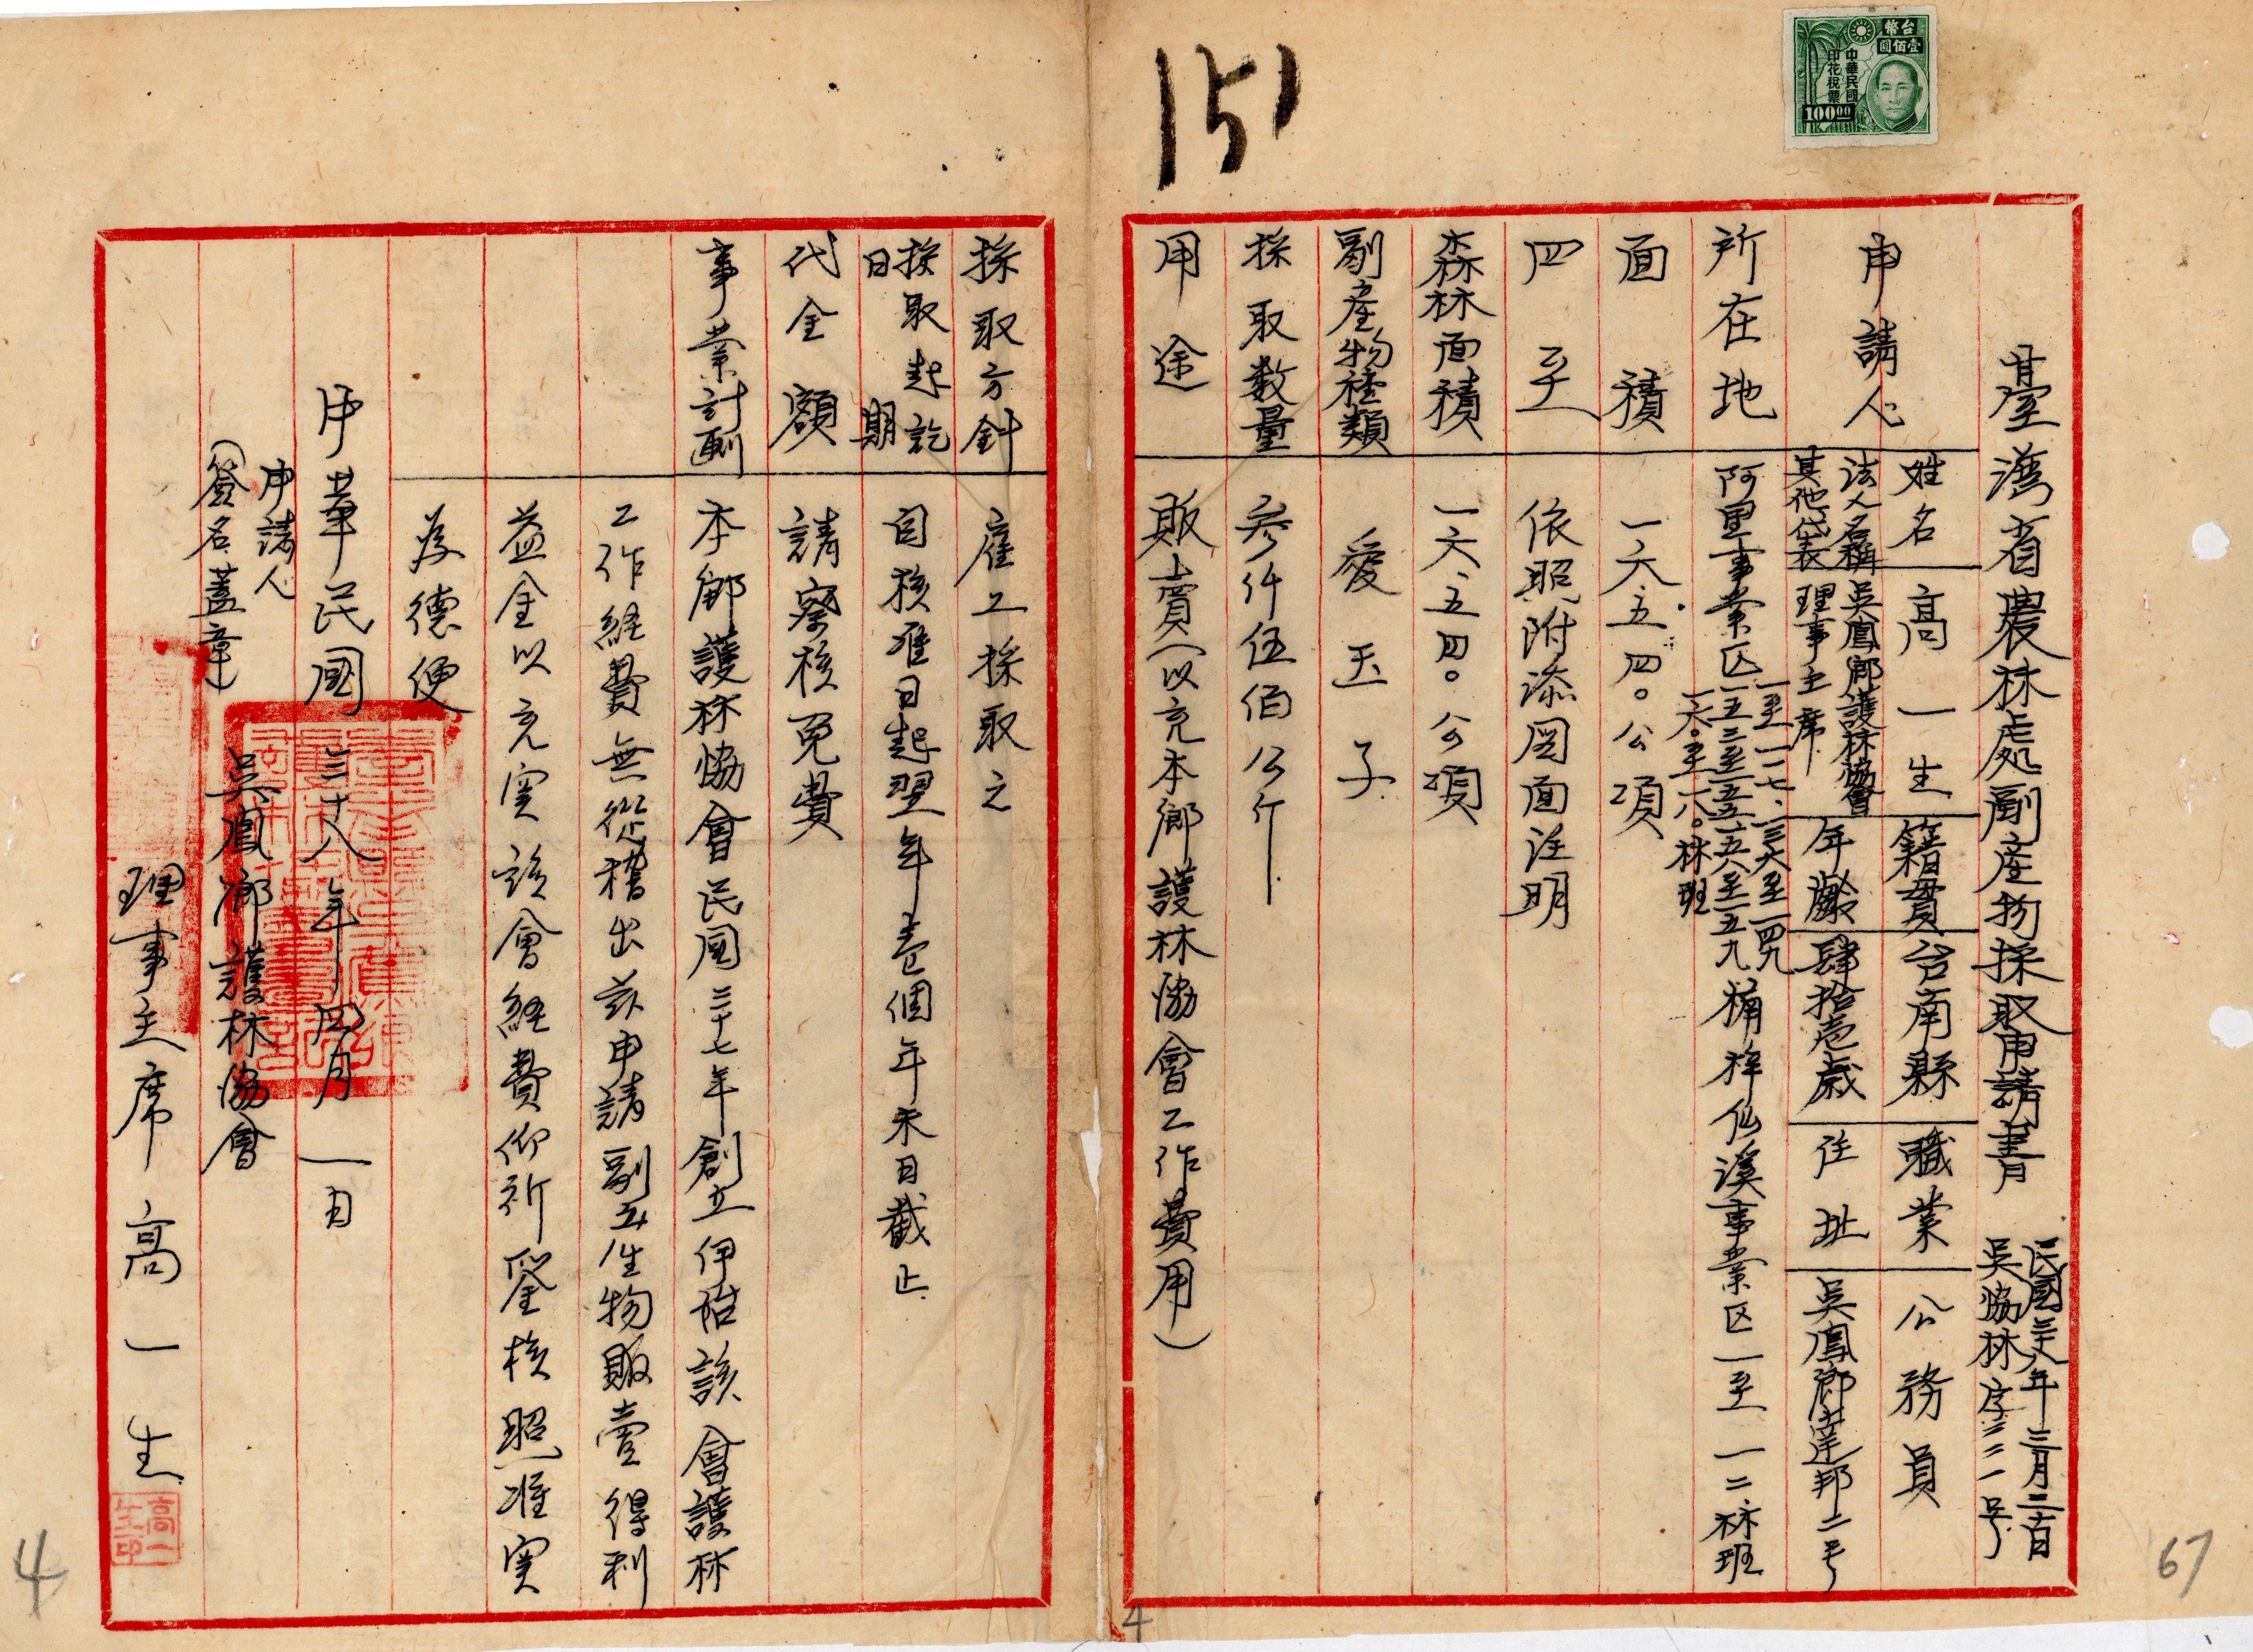 151
台幣
壹佰圓
中華民國
印花稅票
100.00
臺灣省農林處副産物採取申請書
民國三十八年三月二十日
吳協林字三二一号
申請人
姓名
高一生
籍貫
台南縣
職業
公務員
法人名稱
其他代表
吳鳳鄉護林協會
理事主席
年齡
肆拾壱歲
住址
吳鳳鄉達邦二号
所在地
阿里事業区
一至一一七、一三六至一四九
一五三至一五五、一五八至一五九
一六〇至一八〇林班
楠梓仙溪事業区一至一二林班
面積
一六.五四〇公頃
四至
依照附添図面注明
森林面積
一六.五四〇公頃
副産物種類
愛玉子
採取数量
参仟伍佰公斤
用途
販賣(以充本鄉護林協會工作費用)
採取方針
雇工採取之
採取起訖
日期
自核准日起翌年壱個年末日截止
代金額
請察核免費
事業計劃
本鄉護林協會民国三十七年創立伊始該會護林
工作経費無從穡出茲申請副産生物販賣得利
益金以充実該會経費仰祈鋻核照准実
為德便
中華民國三十八年四月一日
申請人
(簽名蓋章)
吳鳳鄉護林協會
理事主席高一生
高一
生印
4
4
67